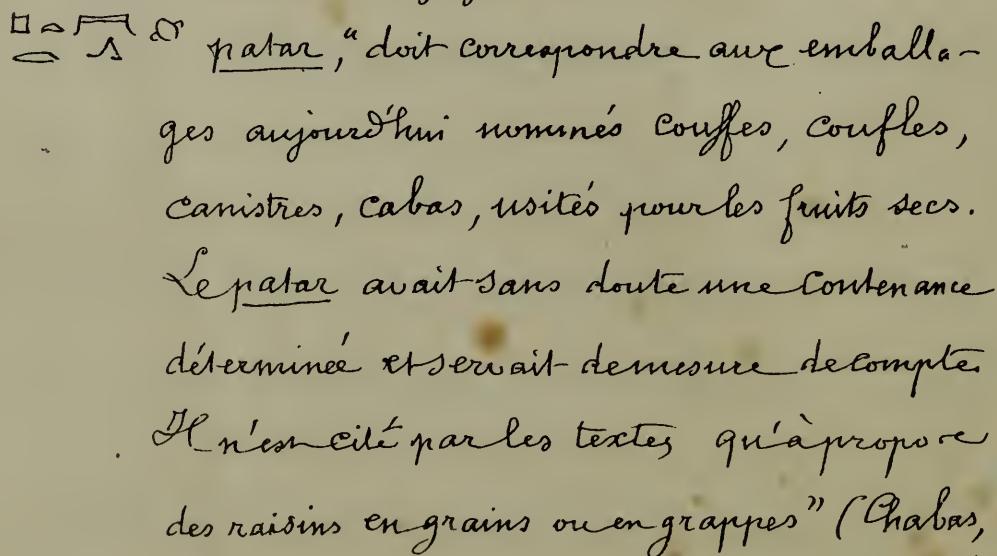 patar, “doit correspondre aux emballa-
ges aujourd'hui nommés Couffes, Coufles,
Canistres, Cabas, usités pour les fruits secs.
Le patar avait sans doute une Contenance
déterminée et servait de mesure de compte.
Il n'est cité par les textes qu'à propos
des raisins en grains ou en grappes” (Chabas,